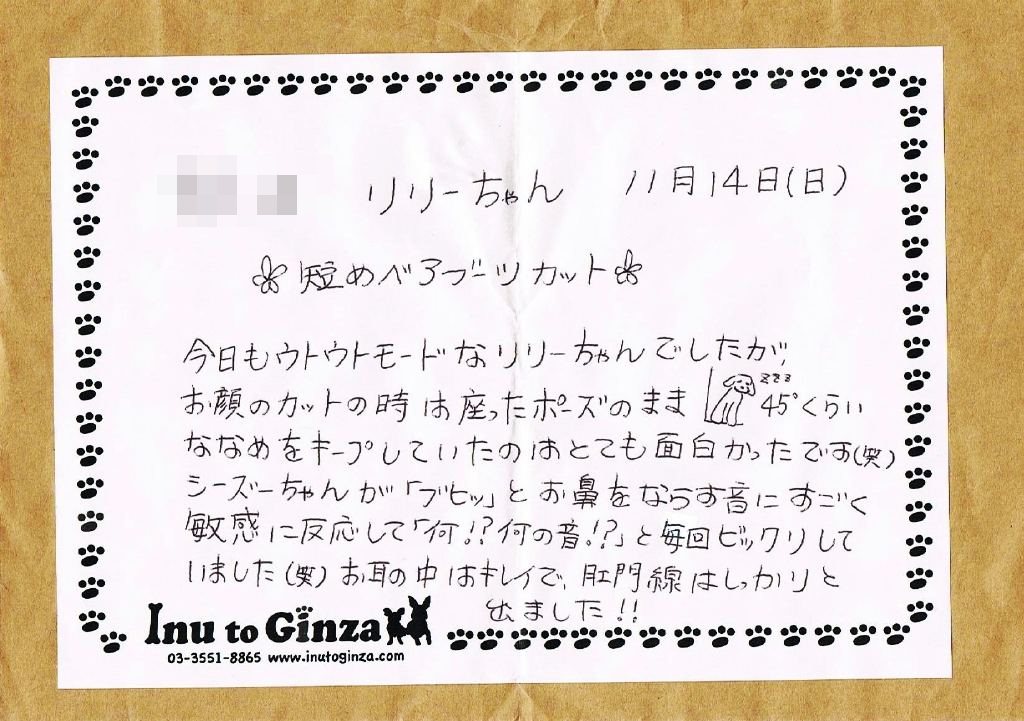 リリーちゃん 11月14日(日)
短めベアブーツカット
今日もウトウトモードなリリーちゃんでしたが、
お顔のカットの時は座ったポーズのまま zzz 45°くらい
ななめをキープしていたのはとても面白かったです(笑)
シーズーちゃんが「ブヒッ」とお鼻をならす音にすごく
敏感に反応して「何!?何の音!?」と毎回ビックリして
いました(笑) お耳の中はキレイで、肛門線はしっかりと
出ました!!
Inu to Ginza
03-3551-8865 www.inutoginza.com